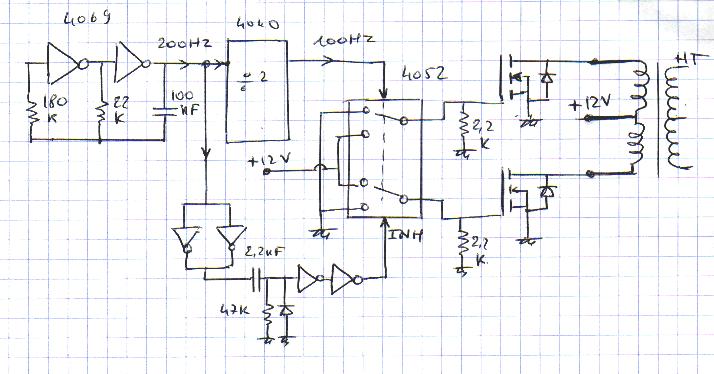 4069
200HZ
4040
÷ 2
100HZ
4052
HT
180
K
22
K
100
nF
+12V
2,2
K
+12V
INH
2,2nF
47K
2,2
K